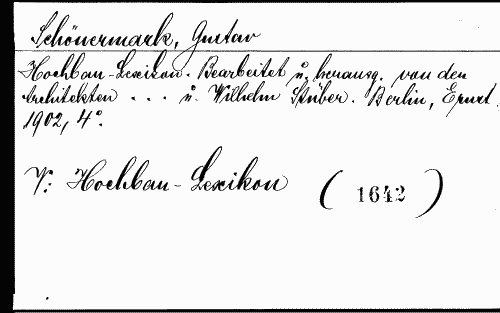 Schönermark, Gustav
Hochbau-Lexikon. Bearbeitet u. herausg. von den
Architekten . . . u. Wilhelm Stüber. Berlin, Ernst,
1902, 4°.
V: Hochbau-Lexikon ( 1642 )